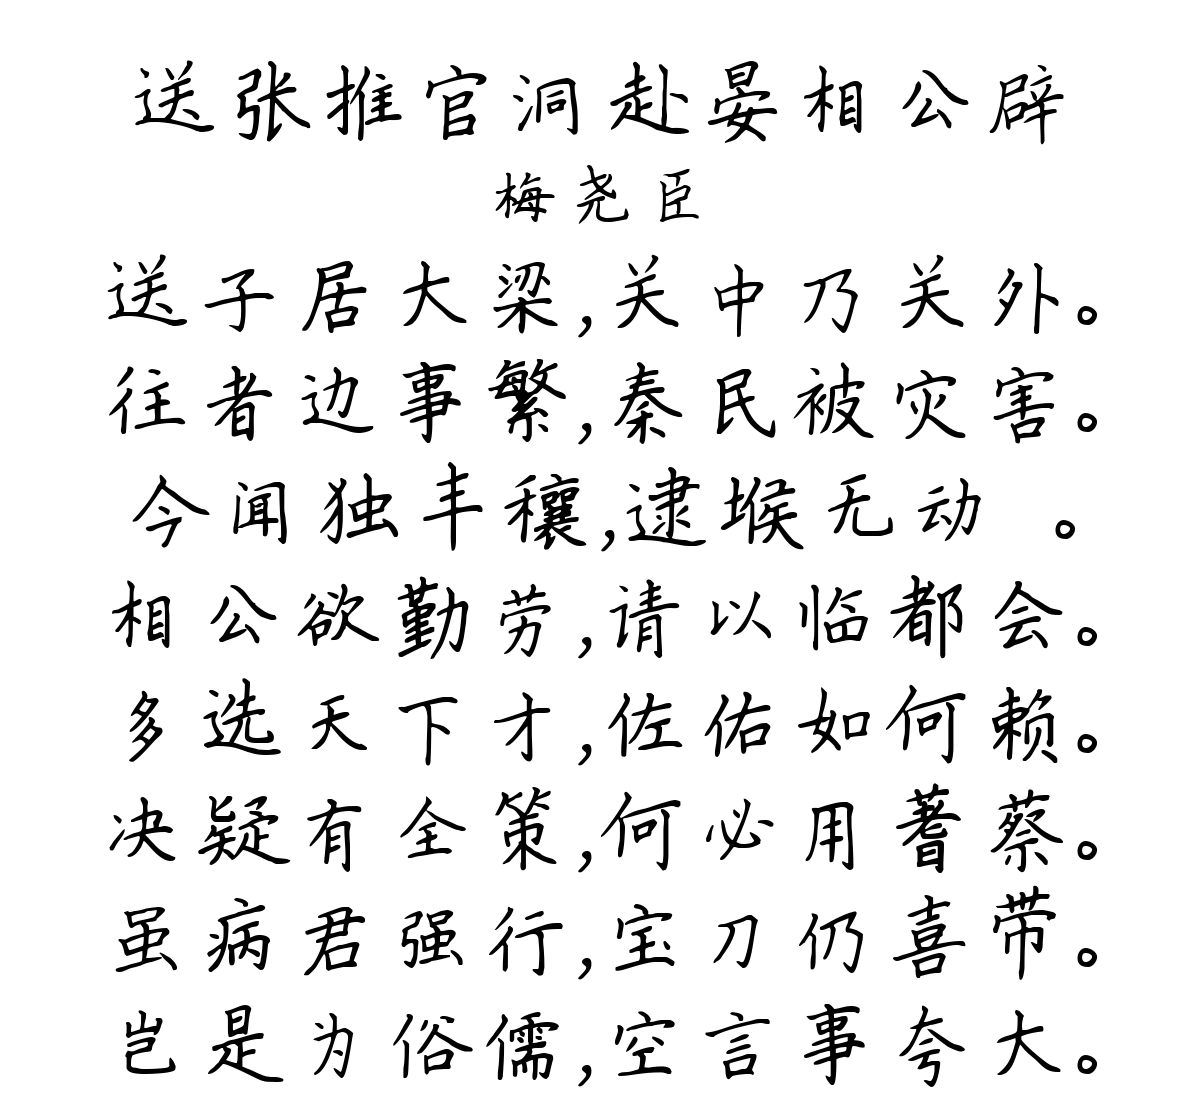 送张推官洞赴晏相公辟
梅尧臣
送子居大梁,关中乃关外。
往者边事繁,秦民被灾害。
今闻独丰穰,逮堠无动 。
相公欲勤劳,请以临都会。
多选天下才,佐佑如何赖。
决疑有全策,何必用蓍蔡。
虽病君强行,宝刀仍喜带。
岂是为俗儒,空言事夸大。